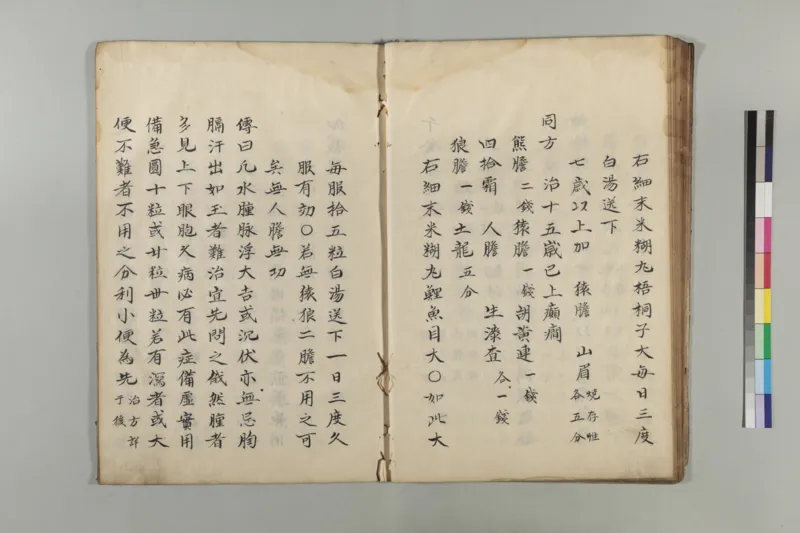 右細末米糊丸梧桐子大每日三度
白湯送下
七歲以上加 猿膽 山眉 燒存性各五分
同方 治十五歲已上癲癇
熊膽二錢猿膽一錢胡黃連一錢
四拾霜 人膽 生漆查各一錢
狼膽一錢土龍五分
右細末米糊丸鯉魚目大〇如此大
每服拾五粒白湯送下一日三度久
服有効〇若無猿狼二膽不用之可
矣無人膽無功
傳曰凡水腫脉浮大吉或沉伏亦無忌胸
膈汗出如玉者難治宜先問之俄然腫者
多見上下眼胞久病必有此症備虛實用
備急圓十粒或廿粒丗粒若有瀉者或大
便不難者不用之分利小便為先治方詳于後